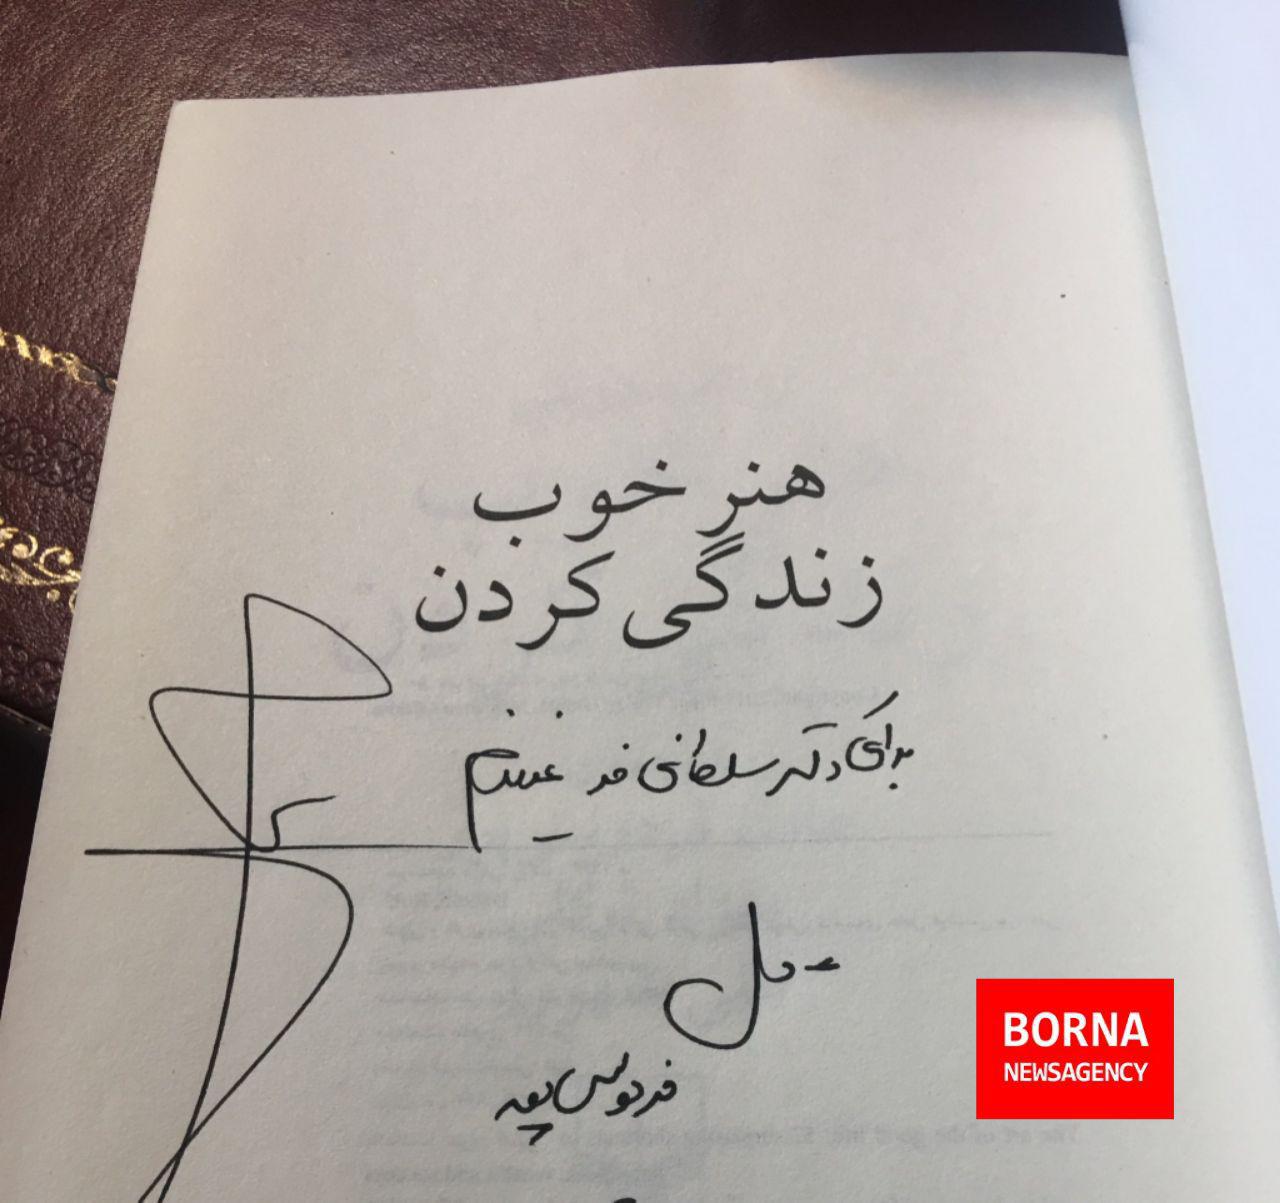 هنر خوب
زندگی کردن
برای دکتر سلطانی فر عزیزم
عادل
فردوسی پور
BORNA
NEWSAGENCY